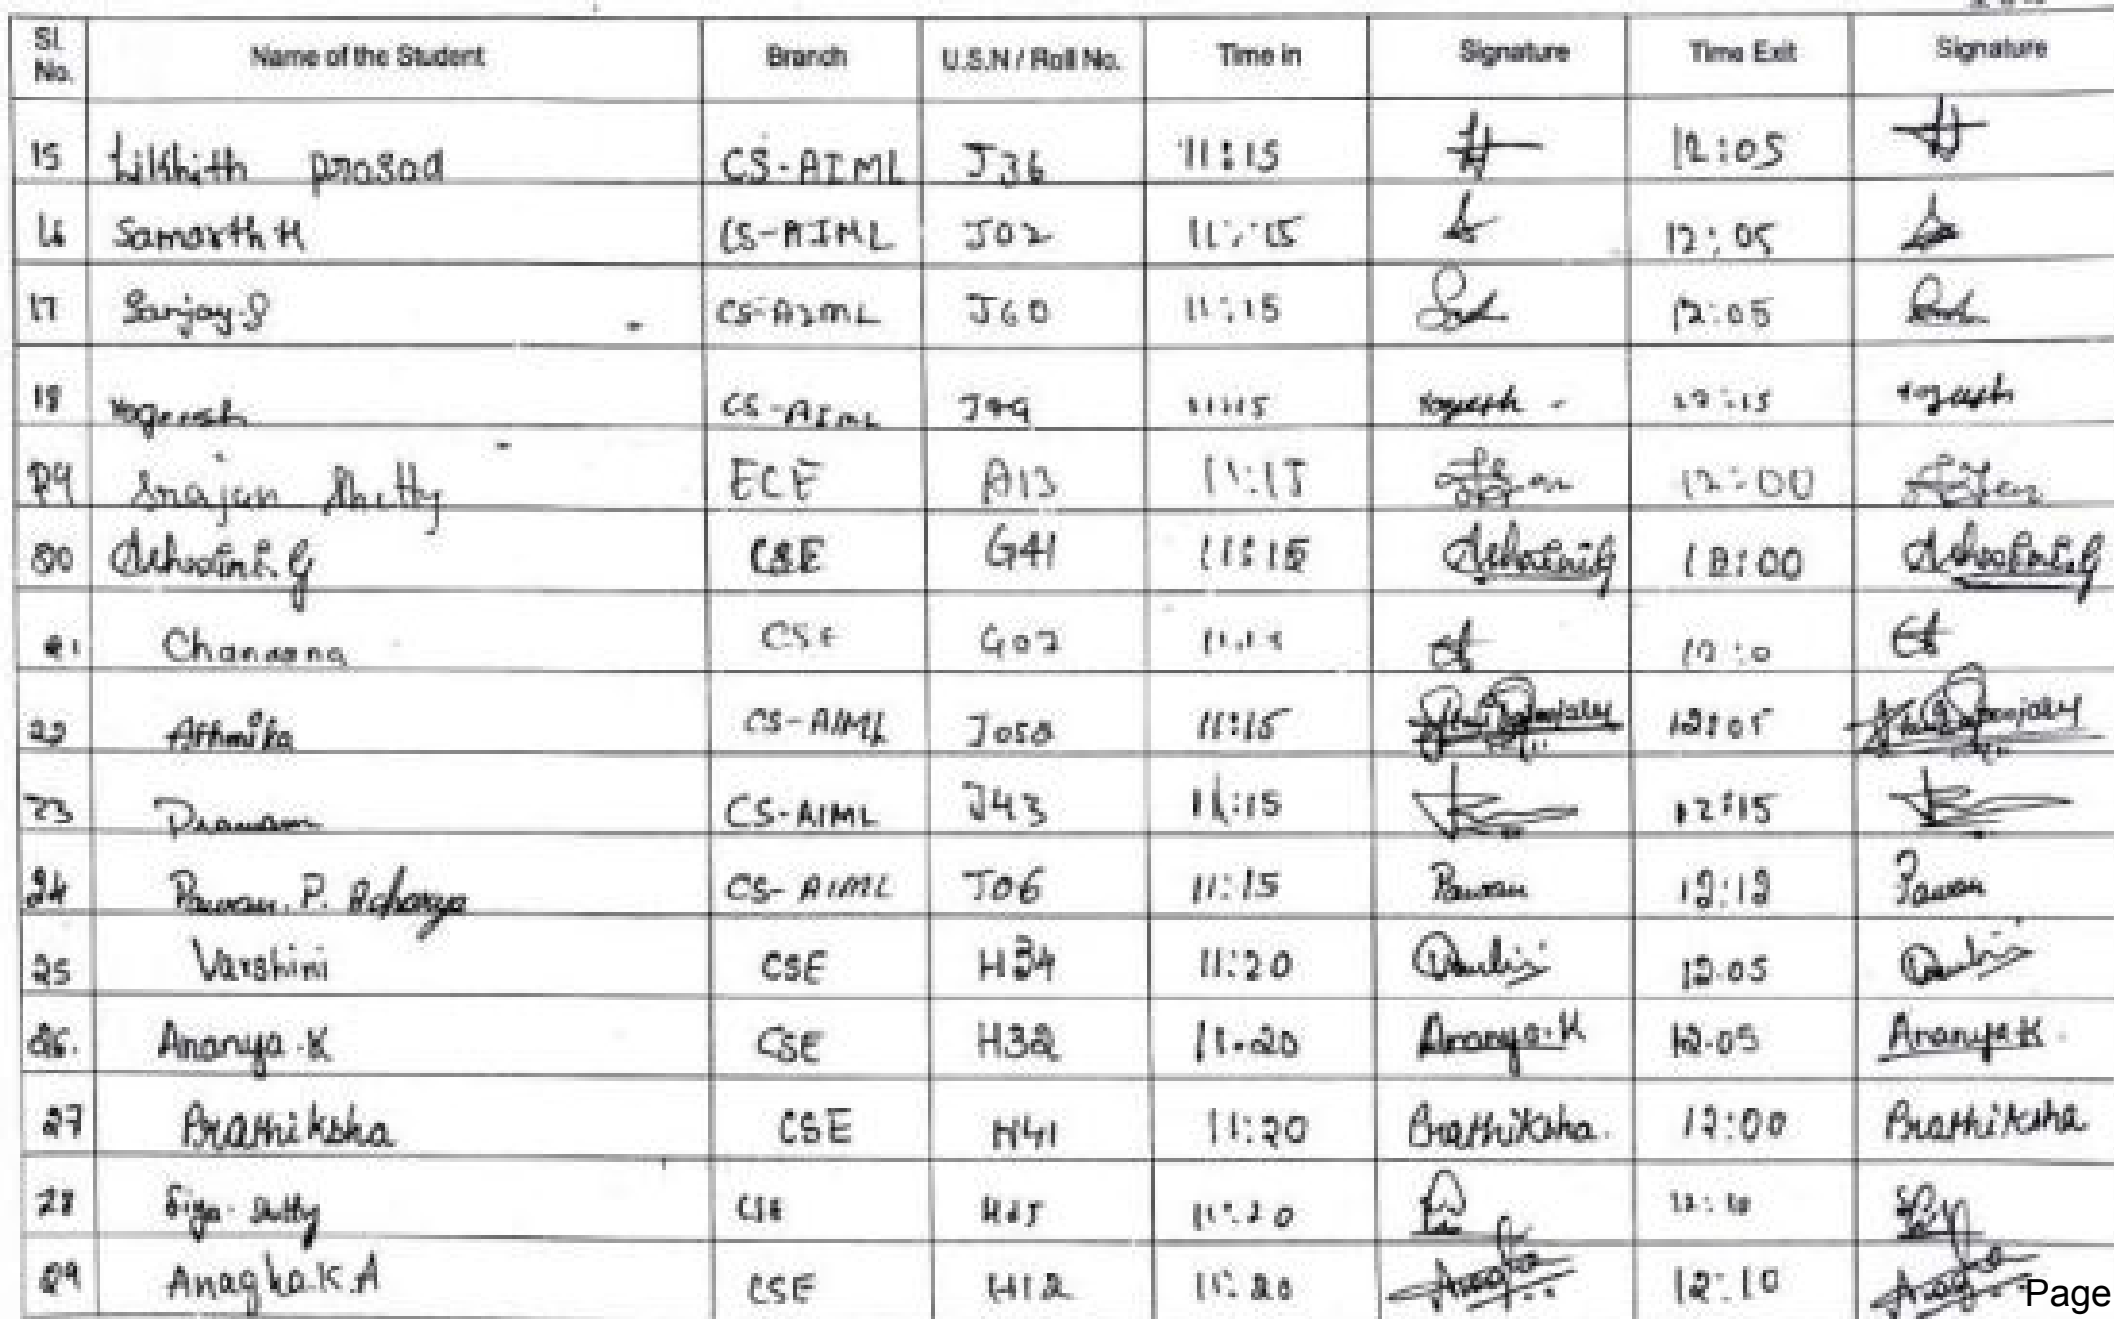 Sl. No. Name of the Student Branch U.S.N / Roll No. Time in Signature Time Exit Signature
15 Likhith prasad CS-AIML J36 11:15 12:05
16 Samarth H CS-AIML J02 11:15 12:05
17 Sanjay.S CS-AIML J60 11:15 12:05
18 CS-AIML 11:15
Srajan Shetty ECE A13 11:15 12:00
20 CSE G41 11:15 12:00
21 CSE G07
22 Athmika CS-AIML J058 11:15 12:05
23 CS-AIML J43 11:15 12:15
24 Pawan. P. Acharya CS-AIML J06 11:15 Pawan 12:12 Pawan
25 Varshini CSE H34 11:20 12.05
26. Ananya.K CSE H32 11.20 Ananya.K 12.05 Ananya K.
27 Prathiksha CSE H41 11:20 Prathiksha. 12:00 Prathiksha
28 CSE 11:20
29 Anagha.K.A CSE H12 11:20 Anagha 12:10 Anagha
Page